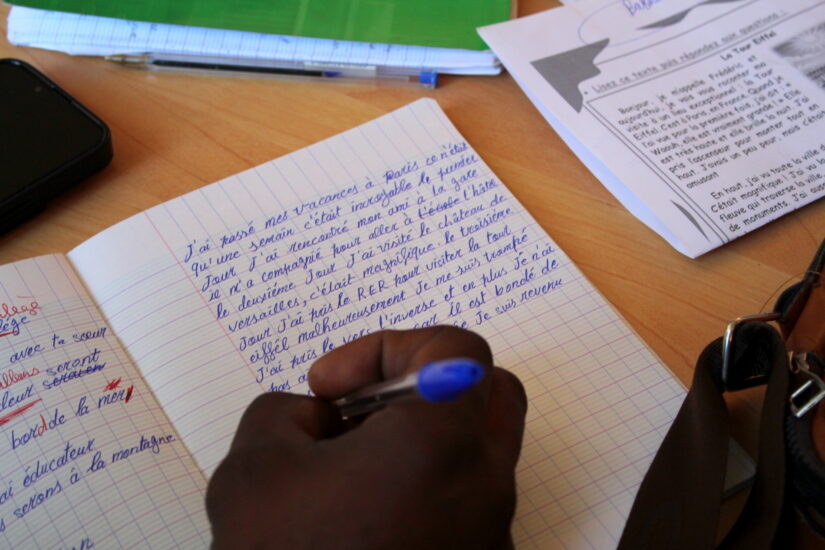 La Tour Eiffel
Lisez ce texte puis répondez aux questions :
Bonjour, je m'appelle Frédéric et
aujourd'hui, je vais vous raconter ma
visite à un lieu exceptionnel : la Tour
Eiffel. C'est à Paris, en France. Quand je
l'ai vue pour la première fois, j'ai dit «
Waouh, elle est vraiment grande ! ». Elle
est très haute et elle brille la nuit. J'ai
pris l'ascenseur pour monter tout en
haut. J'avais un peu peur, mais c'était
amusant
En haut, j'ai vu toute la ville d
C'était magnifique ! J'ai vu la
fleuve qui traverse la ville
de monuments. J'ai aussi
J'ai passé mes vacances à Paris ce n'était
qu'une semain c'était incroyable le premier
Jour J'ai rencontré mon ami à la gare
il m'a compagnie pour aller à l'hôtel
le deuxiéme Jour J'ai visité le château de
versailles, c'était magnifique. le troisième
Jour J'ai pris le RER pour visiter la tour
eiffél malheureusement Je me suis trompé
J'ai pris le vers l'inverse et en plus Je n'ai
pas car il est bondé de
Je suis revenu
avec ta sœur
seront
bord de la mer
ai éducateur
s serons à la montagne